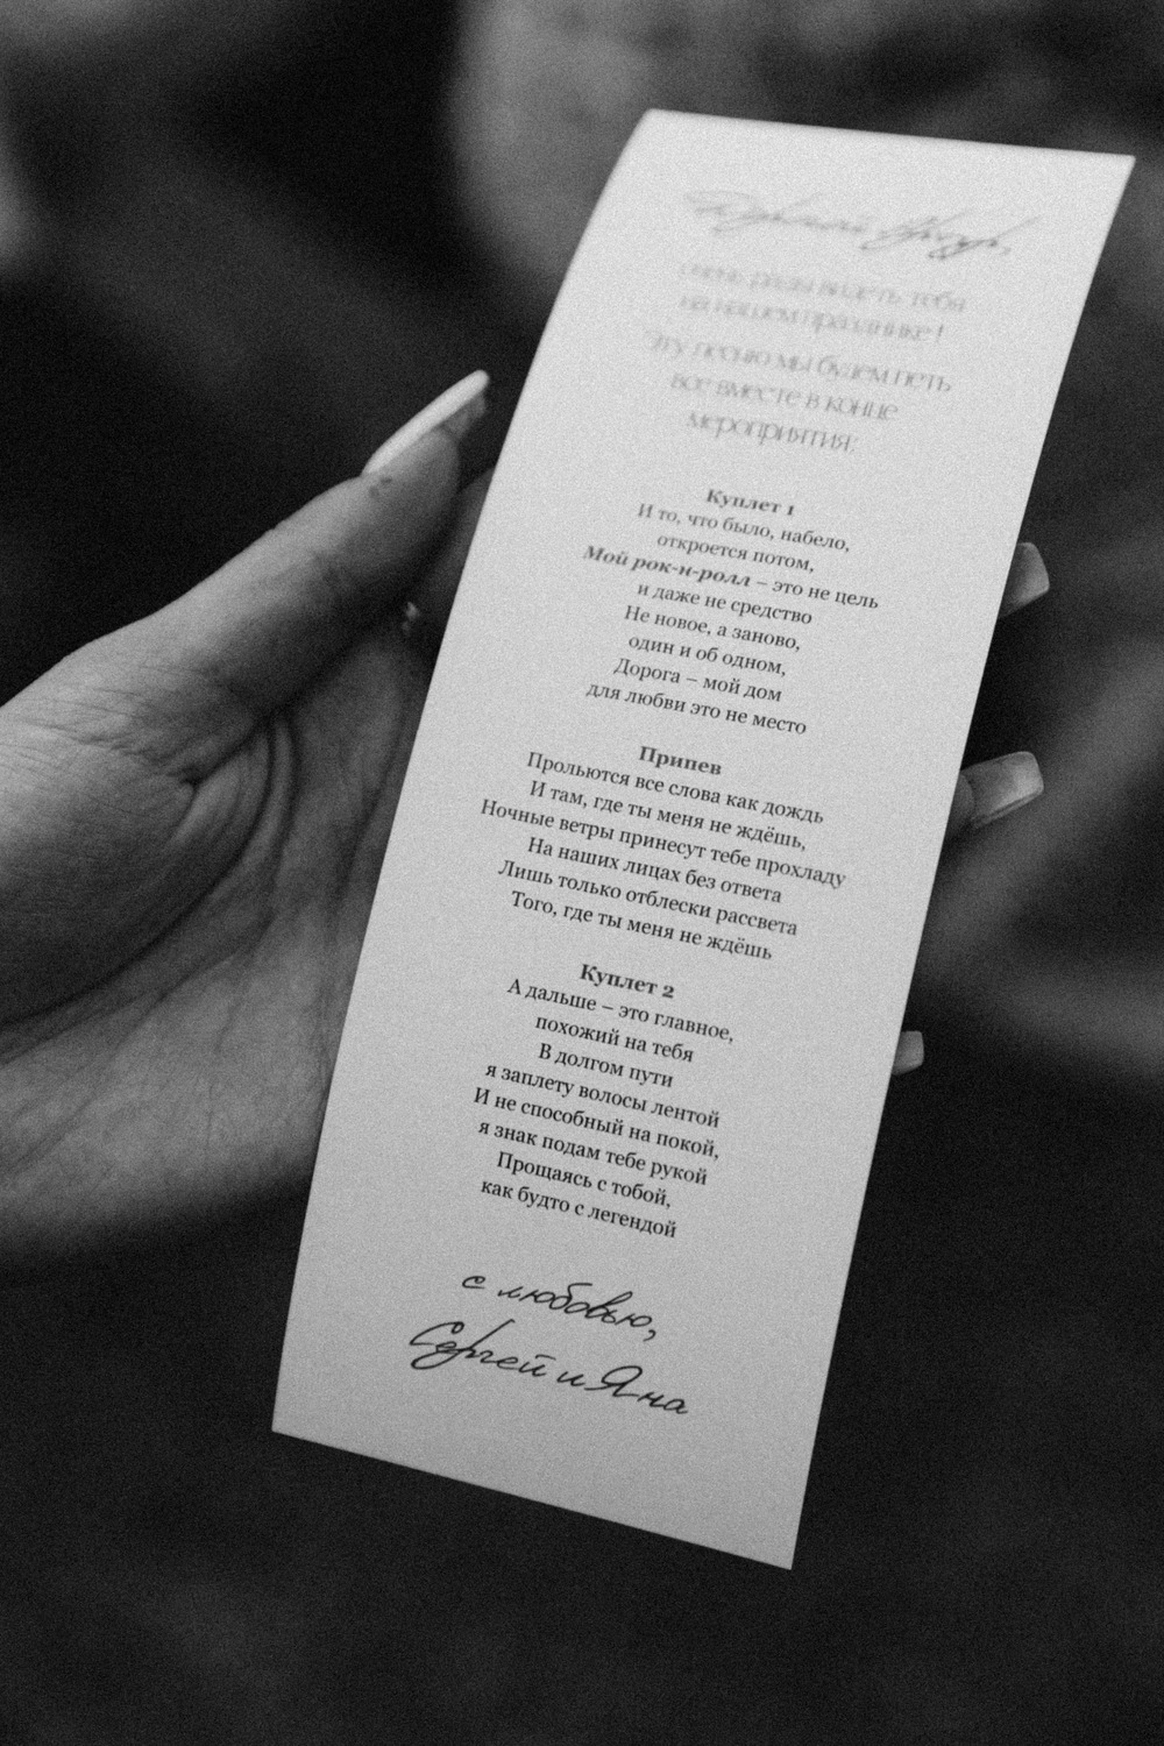 очень рады видеть тебя
на нашем празднике!
Эту песню мы будем петь
все вместе в конце
мероприятия:
Куплет 1
И то, что было, набело,
откроется потом,
Мой рок-н-ролл – это не цель
и даже не средство
Не новое, а заново,
один и об одном,
Дорога – мой дом
для любви это не место
Припев
Прольются все слова как дождь
И там, где ты меня не ждёшь,
Ночные ветры принесут тебе прохладу
На наших лицах без ответа
Лишь только отблески рассвета
Того, где ты меня не ждёшь
Куплет 2
А дальше – это главное,
похожий на тебя
В долгом пути
я заплету волосы лентой
И не способный на покой,
я знак подам тебе рукой
Прощаясь с тобой,
как будто с легендой
с любовью,
Сергей и Яна